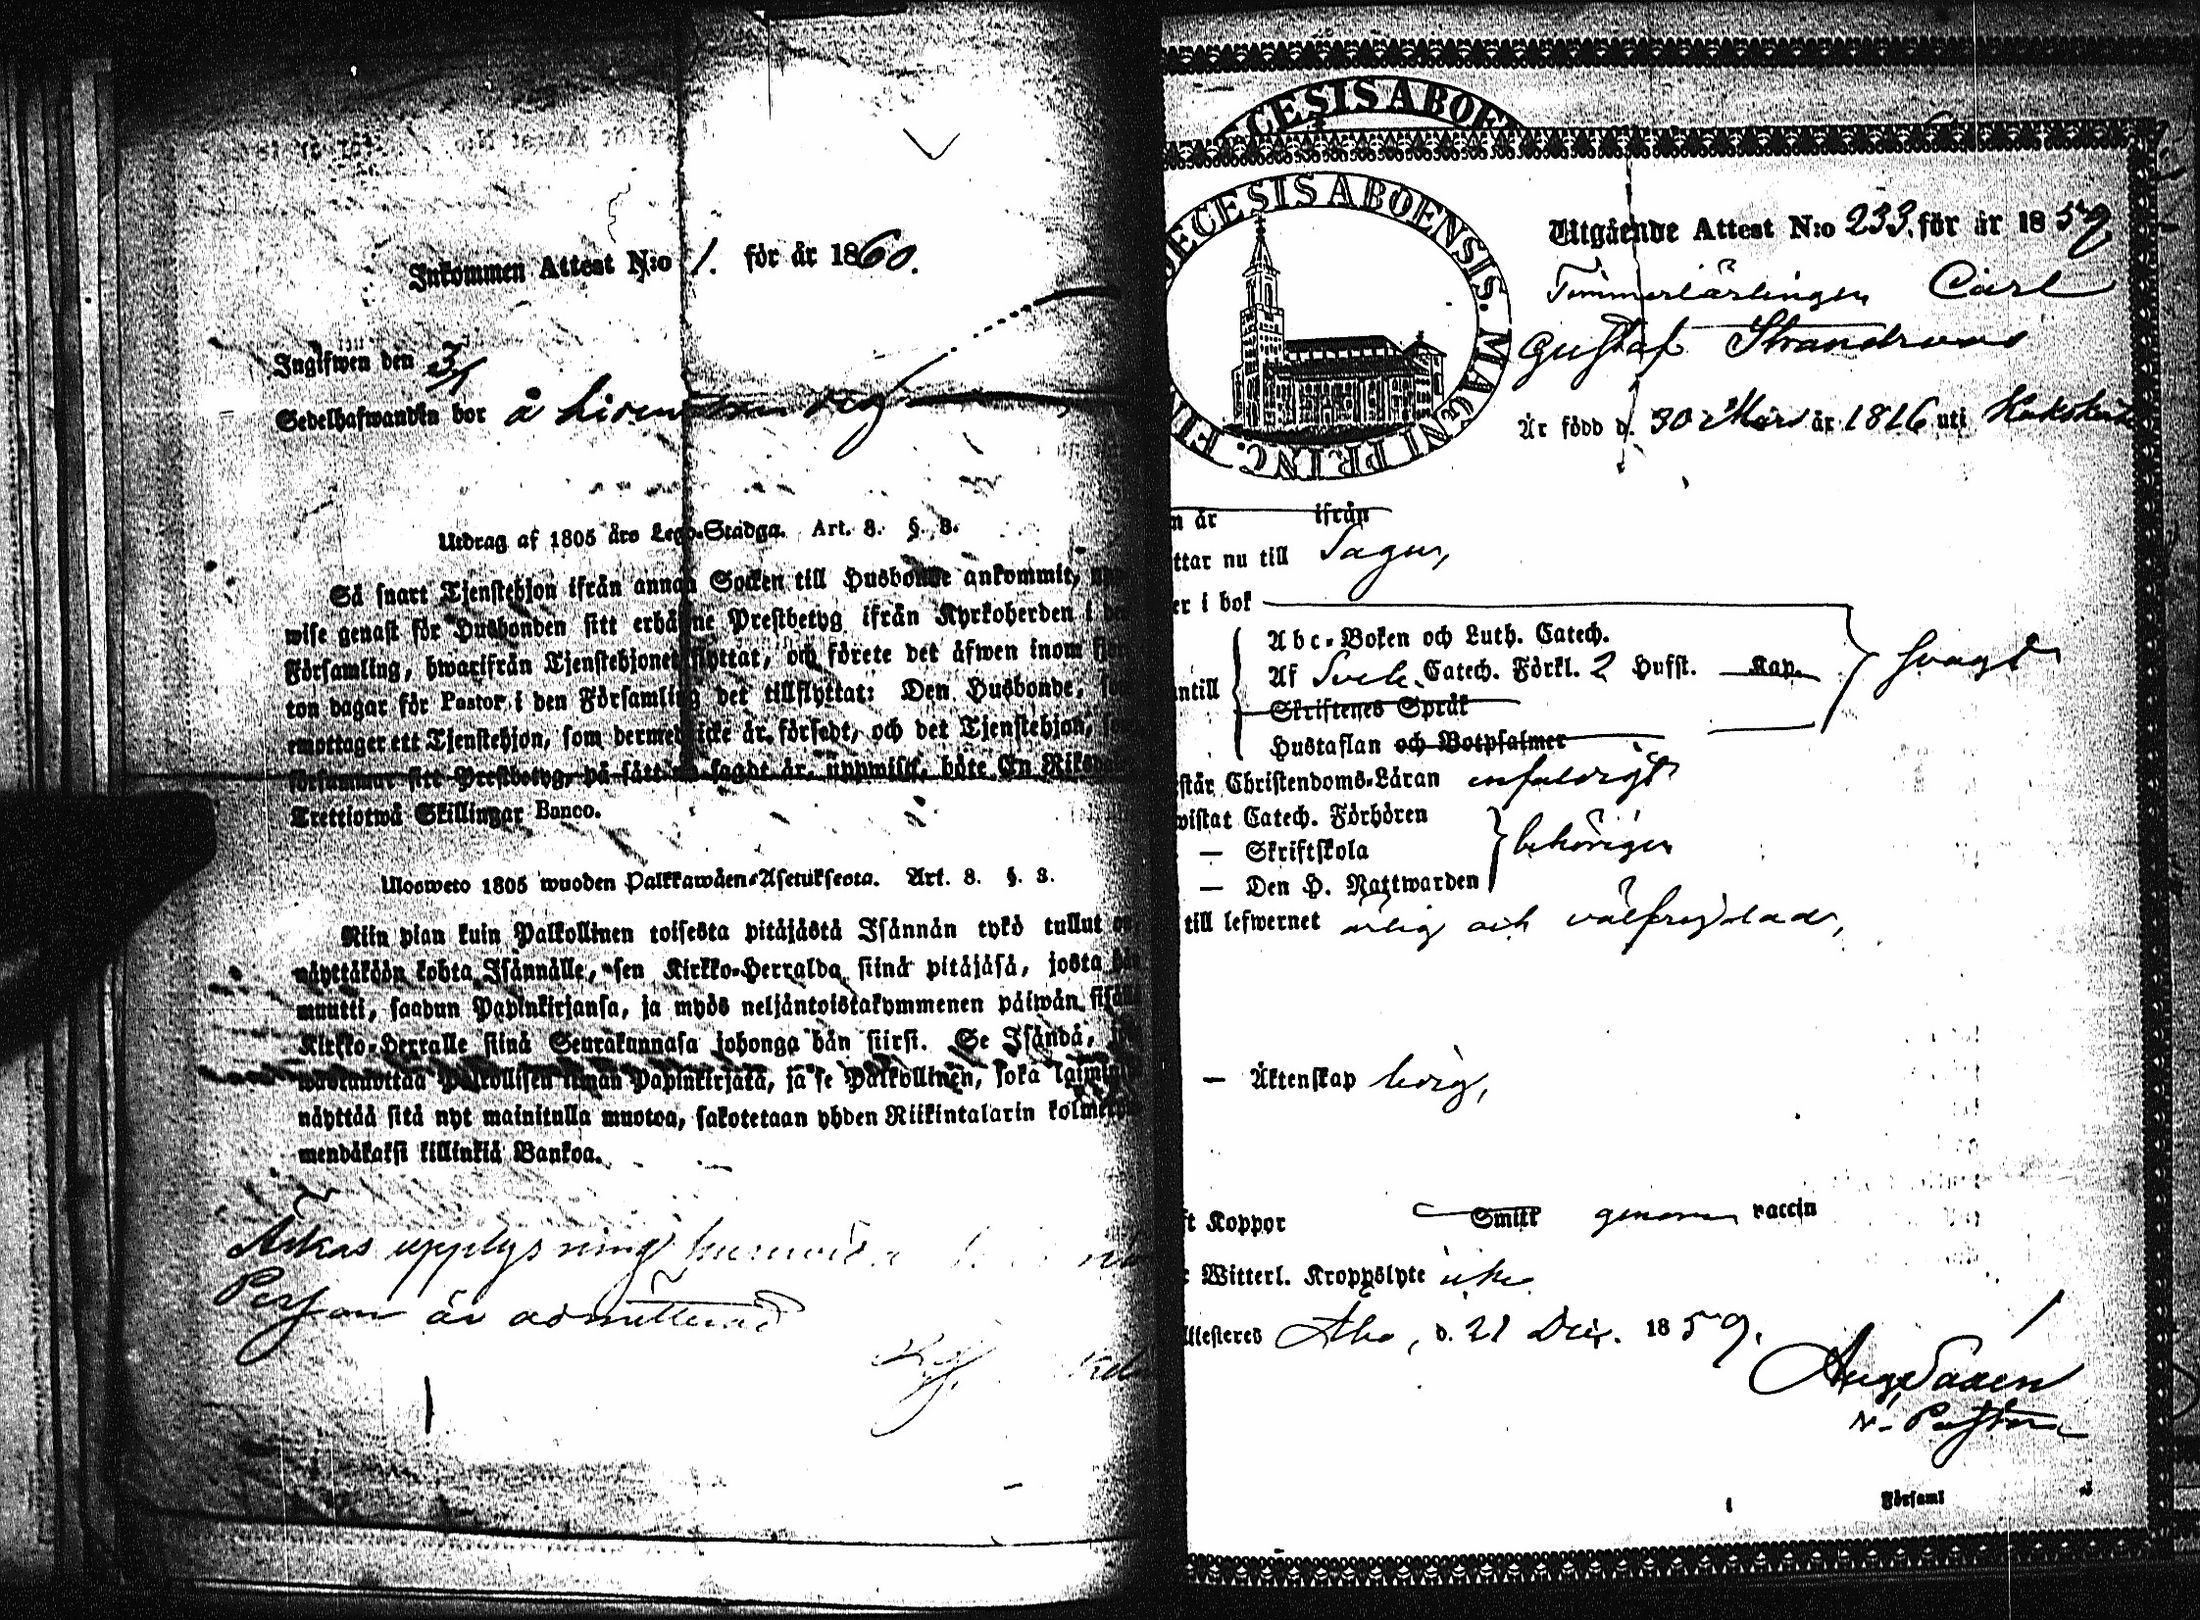 Inkommen Attest N:o 1. för år 1860.
Ingifwen den 3/1
Sedelhafwanden bor å
Utdrag af 1805 års Lego-Stadga. Art. 8. §. 3.
Så snart Tjenstehjon ifrån annan Socken till Husbonde ankommit,
wise genast för Husbonden sitt erhållne Prestbetyg ifrån Kyrkoherden i
Församling, hwarifrån Tjenstehjonet flyttat, och förete det äfwen inom
ton dagar för Pastor i den Församling det tillflyttat: Den Husbonde,
emottager ett Tjenstehjon, som dermed icke är försedt, och det Tjenstehjon,
försummar sitt Prestbetyg, på sätt nu sagdt är, uppwisa, böte En
Trettiotwå Skillingar Banco.
Ulosweto 1805 wuoden Palkkawäen-Asetuksesta. Art. 8. §. 3.
Niin pian kuin Palkollinen toisesta pitäjästä Isännän tykö tullut
näyttäköön kohta Isännälle, sen Kirkko-Herralda siinä pitäjäsä, josta hän
muutti, saadun Papinkirjansa, ja myös neljäntoistakymmenen päiwän
Kirkko-Herralle siinä Seurakunnasa johonga hän siirsi. Se Isändä,
Palkollisen ilman Papinkirjata, ja se Palkollinen, joka
näyttää sitä nyt mainitulla muotoa, sakotetaan yhden Riikintalarin
mendäkaksi killinkiä Bankoa.
Äskas upplysning huruvida
Person är admitterad
DIECESIS ABOEN
DIECESIS ABOENSIS. MAGNI PRINC. FIN
Utgående Attest N:o 233. för år 1859
Timmerlärlingen Carl
Gustaf
Är född d. 30 Mars år 1816 uti
n år ifrån
ttar nu till Sagu,
er i bok
Abc-Boken och Luth. Catech.
ntill Af Sveb. Catech. Förkl. 2 Hufst. Kap. svagt
Skriftenes Språk
Hustaflan och Botpsalmer
står Christendoms-Läran enfaldigt
wistat Catech. Förhören
— Skriftskola behörigen
— Den H. Nattwarden
till lefwernet ärlig och välfrejdad,
— Äktenskap ledig,
ft Koppor Smitt genom vaccin
Witterl. Kroppslyte icke
Attesteres Åbo, d. 21 Dec. 1859.
Aug Saxén
v. Pastor
Församl